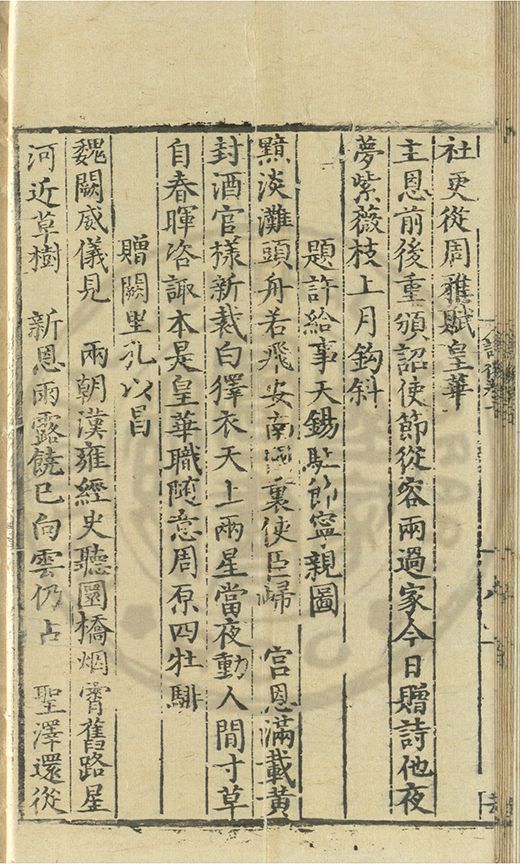 社更從周雅賦皇華
主恩前後重頒詔使節從容兩過家今日贈詩他夜
夢紫薇枝上月鈎斜
題許給事天錫駐節寧親圖
黯淡灘頭舟若飛安南裏使臣歸 宫恩滿載黄
封酒官樣新裁白擇衣天上兩星當夜動人間寸草
自春暉咨諏本是皇華職随意周原四牡騑
贈闕里孔以昌
魏闕威儀見 兩朝漢雍經史聽圜橋烟霄舊路星
河近草樹 新恩雨露饒已向雲仍占 聖澤還從